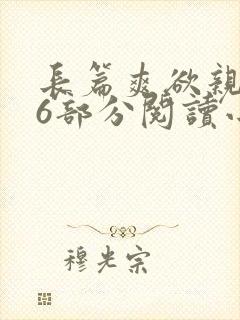 長篇爽欲親
6部分閱讀小
穆光宗